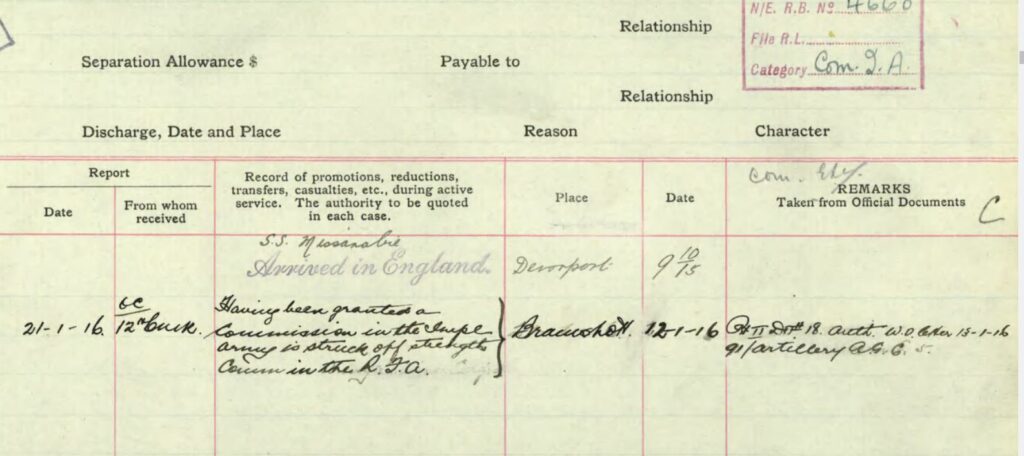 N/E. R.B. Nº 4660
Relationship
File R.L.
Separation Allowance $ Payable to
Category Com. I. A.
Relationship
Discharge, Date and Place Reason Character
Report
Record of promotions, reductions,
transfers, casualties, etc., during active
service. The authority to be quoted
in each case.
Date
From whom
received
Place
Date
Com.
REMARKS
Taken from Official Documents
C
S.S. Missanabie
Arrived in England.
Devonport
9 10/15
21-1-16.
OC
12th
Having been granted a
Commission in the Impl
army is struck off strength
Comm in the R.F.A.
Bramshott.
12-1-16
Pt II DO# 18. Auth. W.O. letter 15-1-16
91/artillery